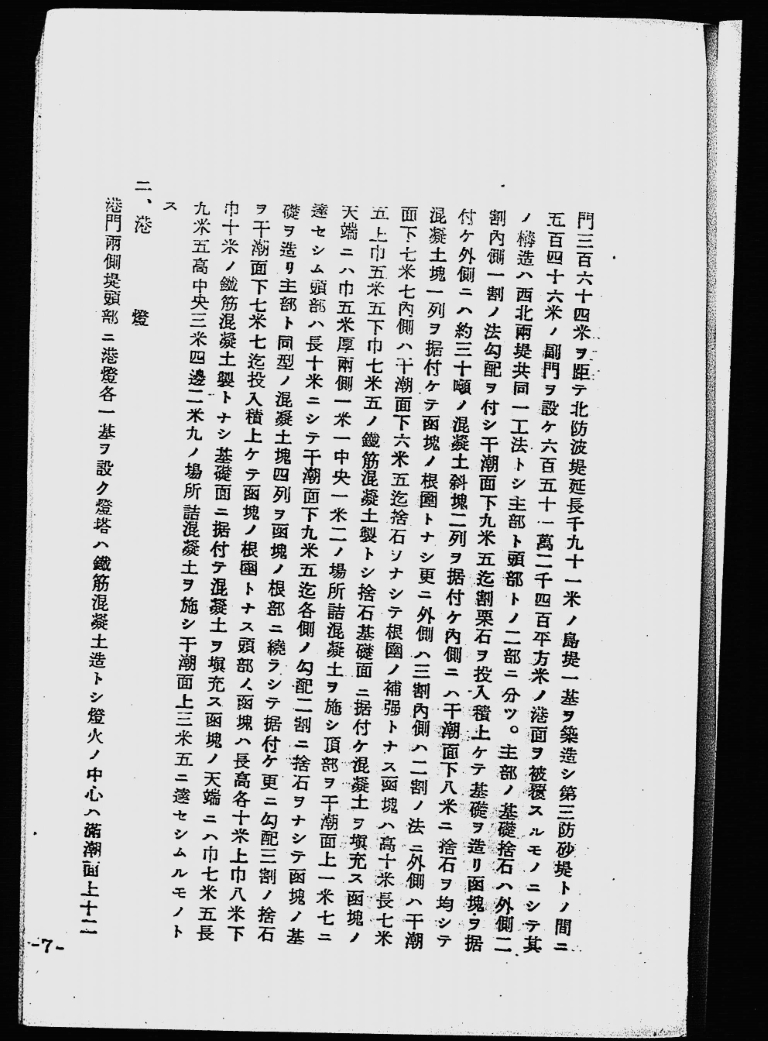 門三百六十四米ヲ距テ北防波堤延長千九十一米ノ島堤一基ヲ築造シ第三防砂堤トノ間ニ
五百四十六米ノ副門ヲ設ケ六百五十一萬二千四百平方米ノ港面ヲ被覆スルモノニシテ其
ノ構造ハ西北兩堤共同一工法トシ主部ト頭部トノ二部ニ分ツ。主部ノ基礎捨石ハ外側二
割內側一割ノ法勾配ヲ付シ干潮面下九米五迄割栗石ヲ投入積上ケテ基礎ヲ造リ凾塊ヲ据
付ケ外側ニハ約三十噸ノ混凝土斜塊二列ヲ据付ケ內側ニハ干潮面下八米ニ捨石ヲ均シテ
混凝土塊一列ヲ据付ケテ凾塊ノ根圍トナシ更ニ外側ハ三割內側ハ二割ノ法ニ外側ハ干潮
面下七米七內側ハ干潮面下六米五迄捨石ヲナシテ根圍ノ補强トナス凾塊ハ高十米長七米
五上巾五米五下巾七米五ノ鐵筋混凝土製トシ捨石基礎面ニ据付ケ混凝土ヲ塡充ス凾塊ノ
天端ニハ巾五米厚兩側一米一中央一米二ノ場所詰混凝土ヲ施シ頂部ヲ干潮面上一米七ニ
達セシム頭部ハ長十米ニシテ干潮面下九米五迄各側ノ勾配二割ニ捨石ヲナシテ凾塊ノ基
礎ヲ造リ主部ト同型ノ混凝土塊四列ヲ凾塊ノ根部ニ繞ラシテ据付ケ更ニ勾配三割ノ捨石
ヲ干潮面下七米七迄投入積上ケテ凾塊ノ根圍トナス頭部ノ凾塊ハ長高各十米上巾八米下
巾十米ノ鐵筋混凝土製トナシ基礎面ニ据付テ混凝土ヲ塡充ス凾塊ノ天端ニハ巾七米五長
九米五高中央三米四邊二米九ノ場所詰混凝土ヲ施シ干潮面上三米五ニ達セシムルモノト
ス
二、港燈
港門兩側堤頭部ニ港燈各一基ヲ設ク燈塔ハ鐵筋混凝土造トシ燈火ノ中心ハ滿潮面上十二
-7-